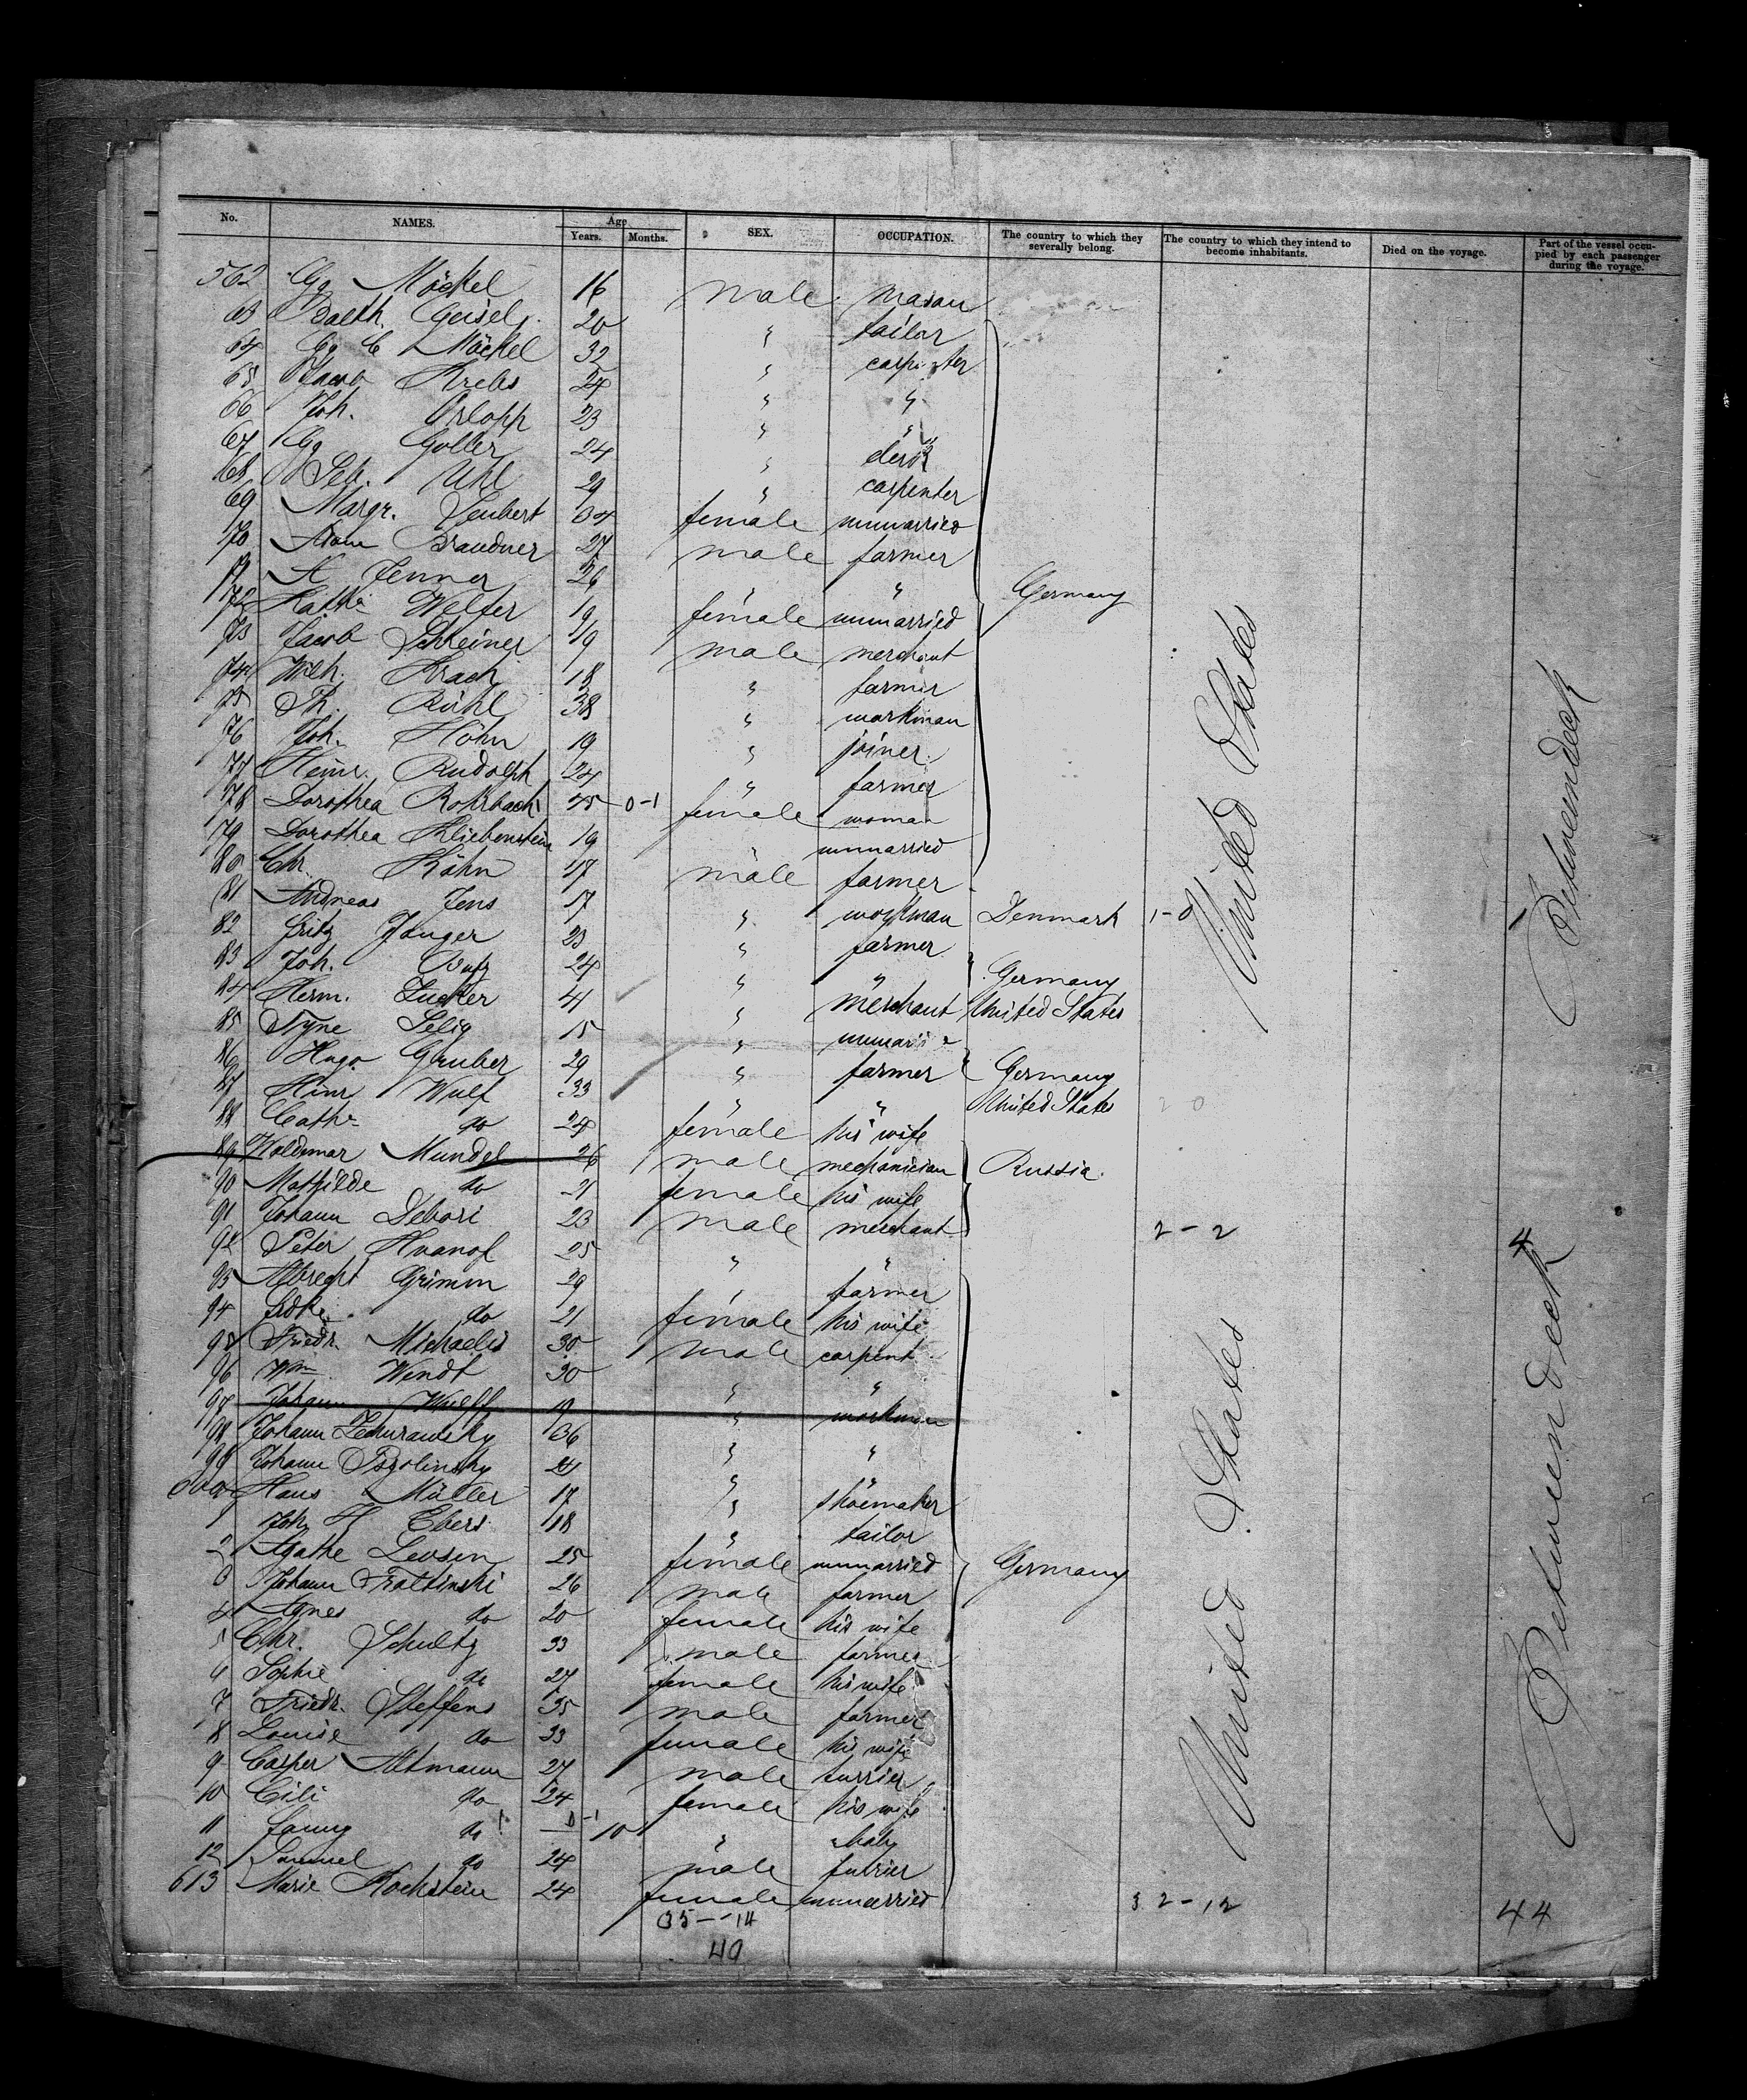 No. NAMES. Age Years. Months. SEX. OCCUPATION. The country to which they severally belong. The country to which they intend to become inhabitants. Died on the voyage. Part of the vessel occupied by each passenger during the voyage.
562 Gg Möckel 16 male mason
63 Balth. Geisel 20 " tailor
64 Gg C Möckel 32 " carpenter
65 Jacob Krebs 24 " "
66 Joh. Orlopp 23 " "
67 Gg Goller 24 " clerk
68 Seb. Uhl 29 " carpenter
69 Margr. Seubert 34 female unmarried
70 Adam Brandner 27 male farmer
71 A Jenner 26 " " Germany
72 Kathi Welfer 19 female unmarried
73 Jacob Schreiner 19 male merchant
74 Wilh. Krach 18 " farmer
75 Th. Rühl 38 " workman
76 Joh. Höhn 19 " joiner
77 Heinr. Rudolph 24 " farmer
78 Dorothea Rohrbach 45 0-1 female woman
79 Dorothea Kliebenstein 19 " unmarried
80 Chr. Köhn 17 male farmer
81 Andreas Jens 17 " workman Denmark 1-0
82 Fritz Junger 23 " farmer
83 Joh. Butz 24 " " Germany
84 Herm. Zucker 41 " merchant United States
85 Tyne Selig 15 "
86 Hugo Gruber 29 " farmer Germany
87 Hinr Wulf 33 " " United States 2 0
88 Cathr. do 24 female his wife
89 Woldemar Mundel 26 male mechanician Russia.
90 Mathilde do 21 female his wife
91 Johann Debori 23 male merchant 2-2
92 Peter Kvanof 25 " " 4
93 Albrecht Grimm 29 " farmer
94 do 21 female his wife
95 Friedr. Michaelis 30 male carpent.
96 Wm Wendt 30 " "
97 Johann Wulff 19 " workman
98 Johann Zchurawsky 36 " "
99 Johann 21 " "
600 Hans Müller 17 " shoemaker
1 Joh H Ebers 18 " tailor
2 Agathe Levsen 25 female unmarried Germany
3 Johann Tratkinski 26 male farmer
4 Agnes do 20 female his wife
5 Chr. Schultz 33 male farmer
6 Sophie do 27 female his wife
7 Friedr. Steffens 35 male farmer
8 Louise do 33 female his wife
9 Casper Altmann 27 male furrier
10 Cili do 24 female his wife
11 Fanny do 0-1 10 " baby
12 Samuel do 24 male furrier
613 Marie Hochstein 24 female unmarried 32-12 44
35-14
49
United States
Betweendeck
United States
Betweendeck